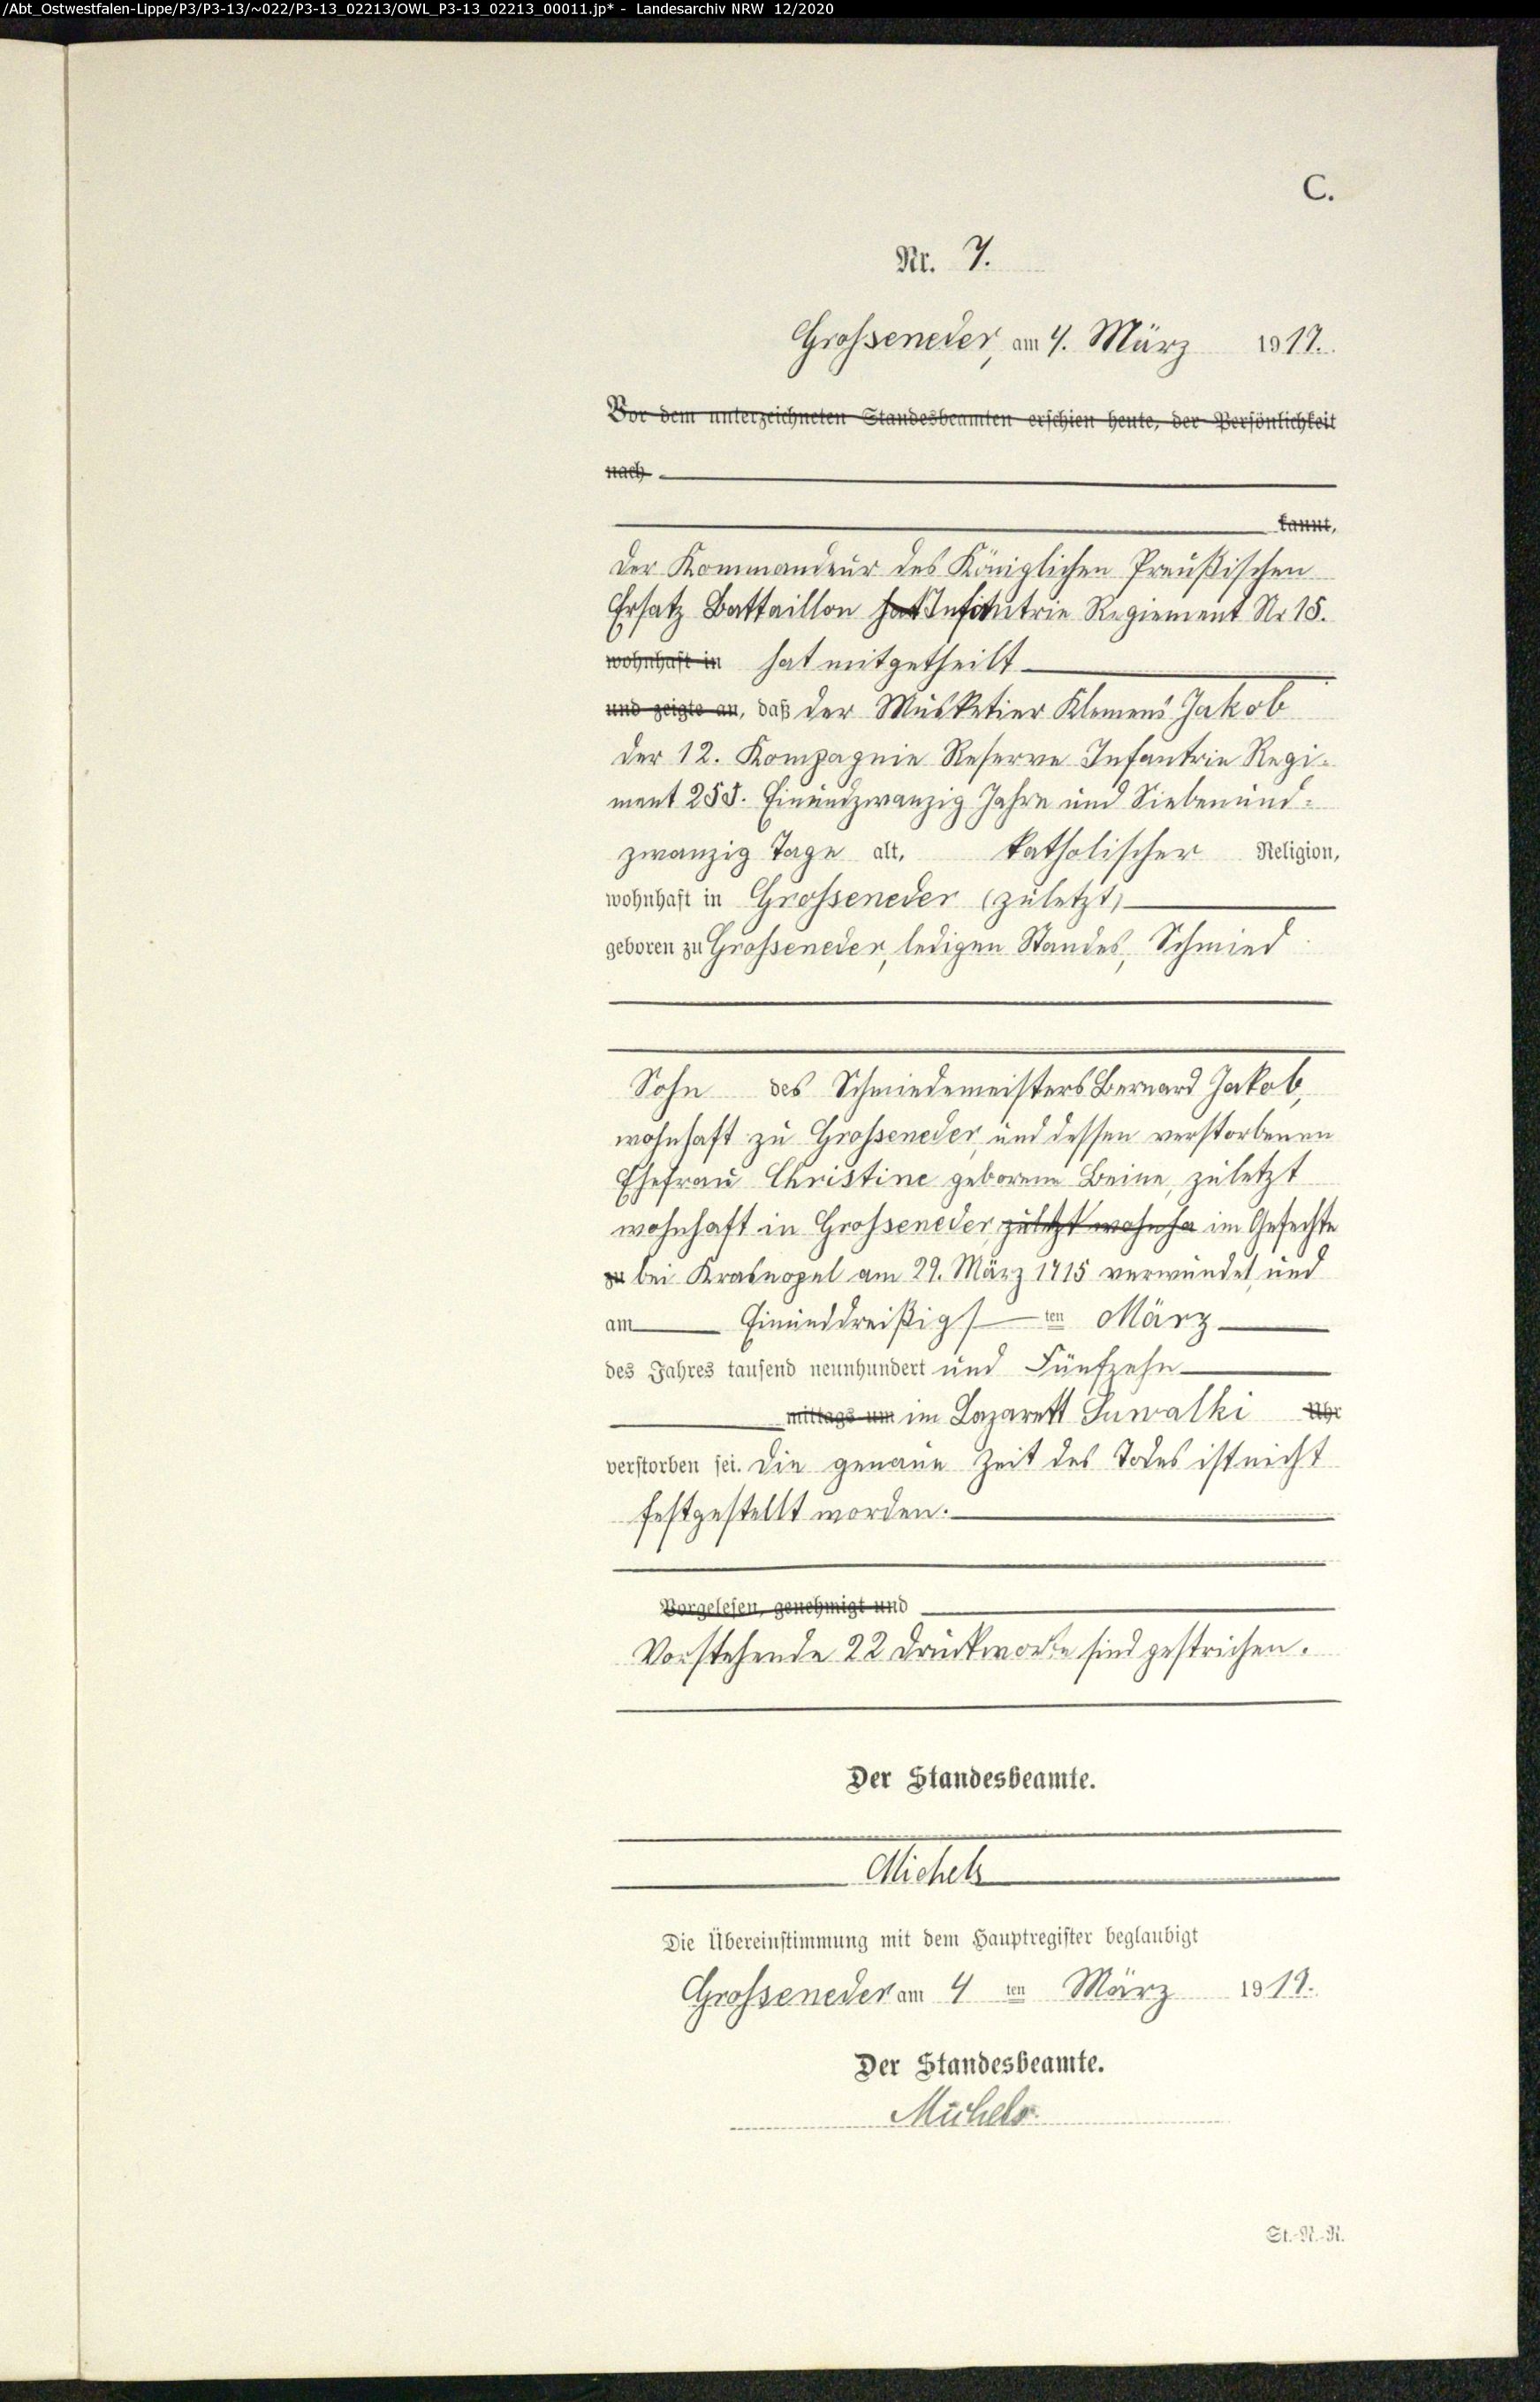 /Abt_Ostwestfalen-Lippe/P3/P3-13/~022/P3-13_02213/OWL_P3-13_02213_00011.jp* - Landesarchiv NRW 12/2020
C.
Nr. 7.
Grosseneder, am 4. März 1917.
Vor dem unterzeichneten Standesbeamten erschien heute, der Persönlichkeit
nach
kannt,
der Kommandeur des Königlichen Preußischen
Ersatz Battaillon hat Infantrie Regiement Nr 15.
wohnhaft in hat mitgetheilt
und zeigte an, daß der Musketier Klemens Jakob
der 12. Kompagnie Reserve Infantrie Regi-
ment 253. Einundzwanzig Jahre und Siebenund-
zwanzig Tage alt, katholischer Religion,
wohnhaft in Grosseneder (zuletzt)
geboren zu Grosseneder, ledigen Standes, Schmied
Sohn des Schmiedemeisters Bernard Jakob,
wohnhaft zu Grosseneder, und dessen verstorbenen
Ehefrau Christine geborene Beine, zuletzt
wohnhaft in Grosseneder, zuletzt wohnha im Gefechte
zu bei Krasnopel am 29. März 1915 verwundet, und
am Einunddreißigs ten März
des Jahres tausend neunhundert und Fünfzehn
mittags um im Lazarett Suwalki Uhr
verstorben sei. Die genaue Zeit des Todes ist nicht
festgestellt worden.
Vorgelesen, genehmigt und
Vorstehende 22 Druckworte sind gestrichen.
Der Standesbeamte.
Michels
Die Übereinstimmung mit dem Hauptregister beglaubigt
Grosseneder am 4 ten März 1917.
Der Standesbeamte.
Michels.
St.-N.-R.